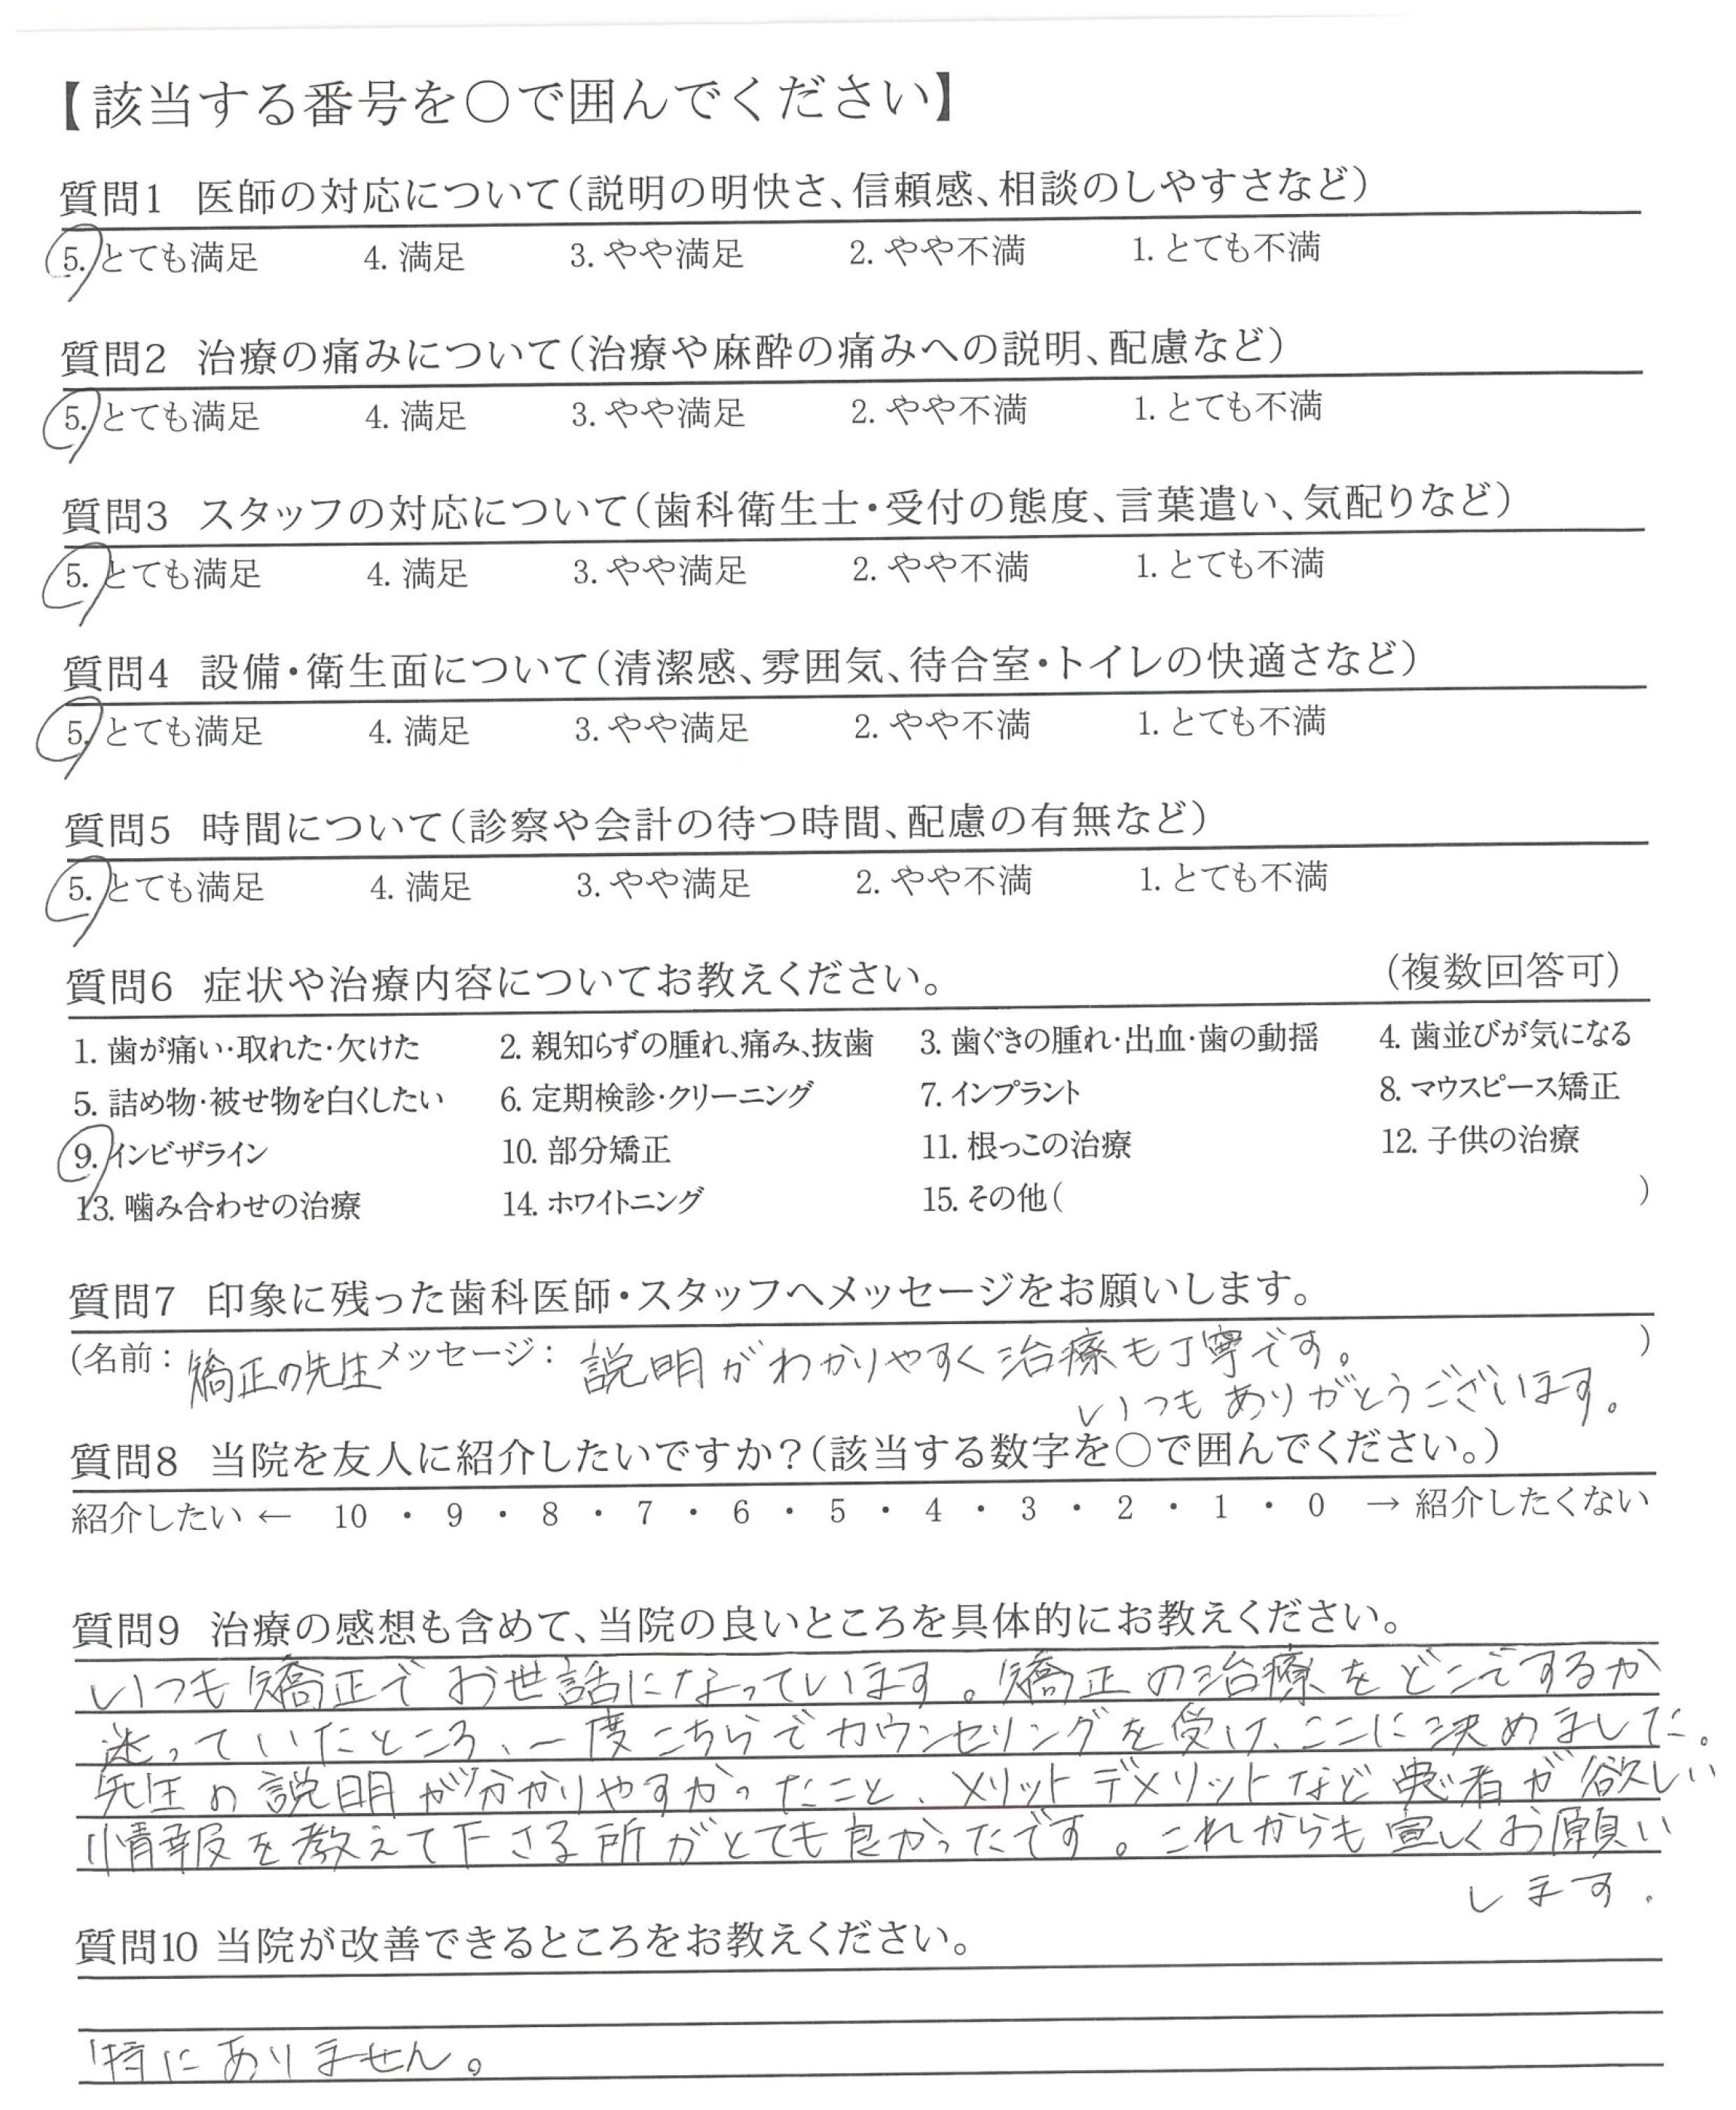 【該当する番号を○で囲んでください】
質問1 医師の対応について(説明の明快さ、信頼感、相談のしやすさなど)
5. とても満足 4. 満足 3. やや満足 2. やや不満 1. とても不満
質問2 治療の痛みについて(治療や麻酔の痛みへの説明、配慮など)
5. とても満足 4. 満足 3. やや満足 2. やや不満 1. とても不満
質問3 スタッフの対応について(歯科衛生士・受付の態度、言葉遣い、気配りなど)
5. とても満足 4. 満足 3. やや満足 2. やや不満 1. とても不満
質問4 設備・衛生面について(清潔感、雰囲気、待合室・トイレの快適さなど)
5. とても満足 4. 満足 3. やや満足 2. やや不満 1. とても不満
質問5 時間について(診察や会計の待つ時間、配慮の有無など)
5. とても満足 4. 満足 3. やや満足 2. やや不満 1. とても不満
質問6 症状や治療内容についてお教えください。 (複数回答可)
1. 歯が痛い・取れた・欠けた 2. 親知らずの腫れ、痛み、抜歯 3. 歯ぐきの腫れ・出血・歯の動揺 4. 歯並びが気になる
5. 詰め物・被せ物を白くしたい 6. 定期検診・クリーニング 7. インプラント 8. マウスピース矯正
9. インビザライン 10. 部分矯正 11. 根っこの治療 12. 子供の治療
13. 噛み合わせの治療 14. ホワイトニング 15. その他( )
質問7 印象に残った歯科医師・スタッフへメッセージをお願いします。
(名前: 矯正の先生 メッセージ: 説明がわかりやすく治療も丁寧です。 )
いつもありがとうございます。
質問8 当院を友人に紹介したいですか?(該当する数字を○で囲んでください。)
紹介したい ← 10 ・ 9 ・ 8 ・ 7 ・ 6 ・ 5 ・ 4 ・ 3 ・ 2 ・ 1 ・ 0 → 紹介したくない
質問9 治療の感想も含めて、当院の良いところを具体的にお教えください。
いつも矯正でお世話になっています。矯正の治療をどこでするか
迷っていたところ、一度こちらでカウンセリングを受け、ここに決めました。
先生の説明が分かりやすかったこと、メリットデメリットなど患者が欲しい
情報を教えて下さる所がとても良かったです。これからも宜しくお願い
します。
質問10 当院が改善できるところをお教えください。
特にありません。